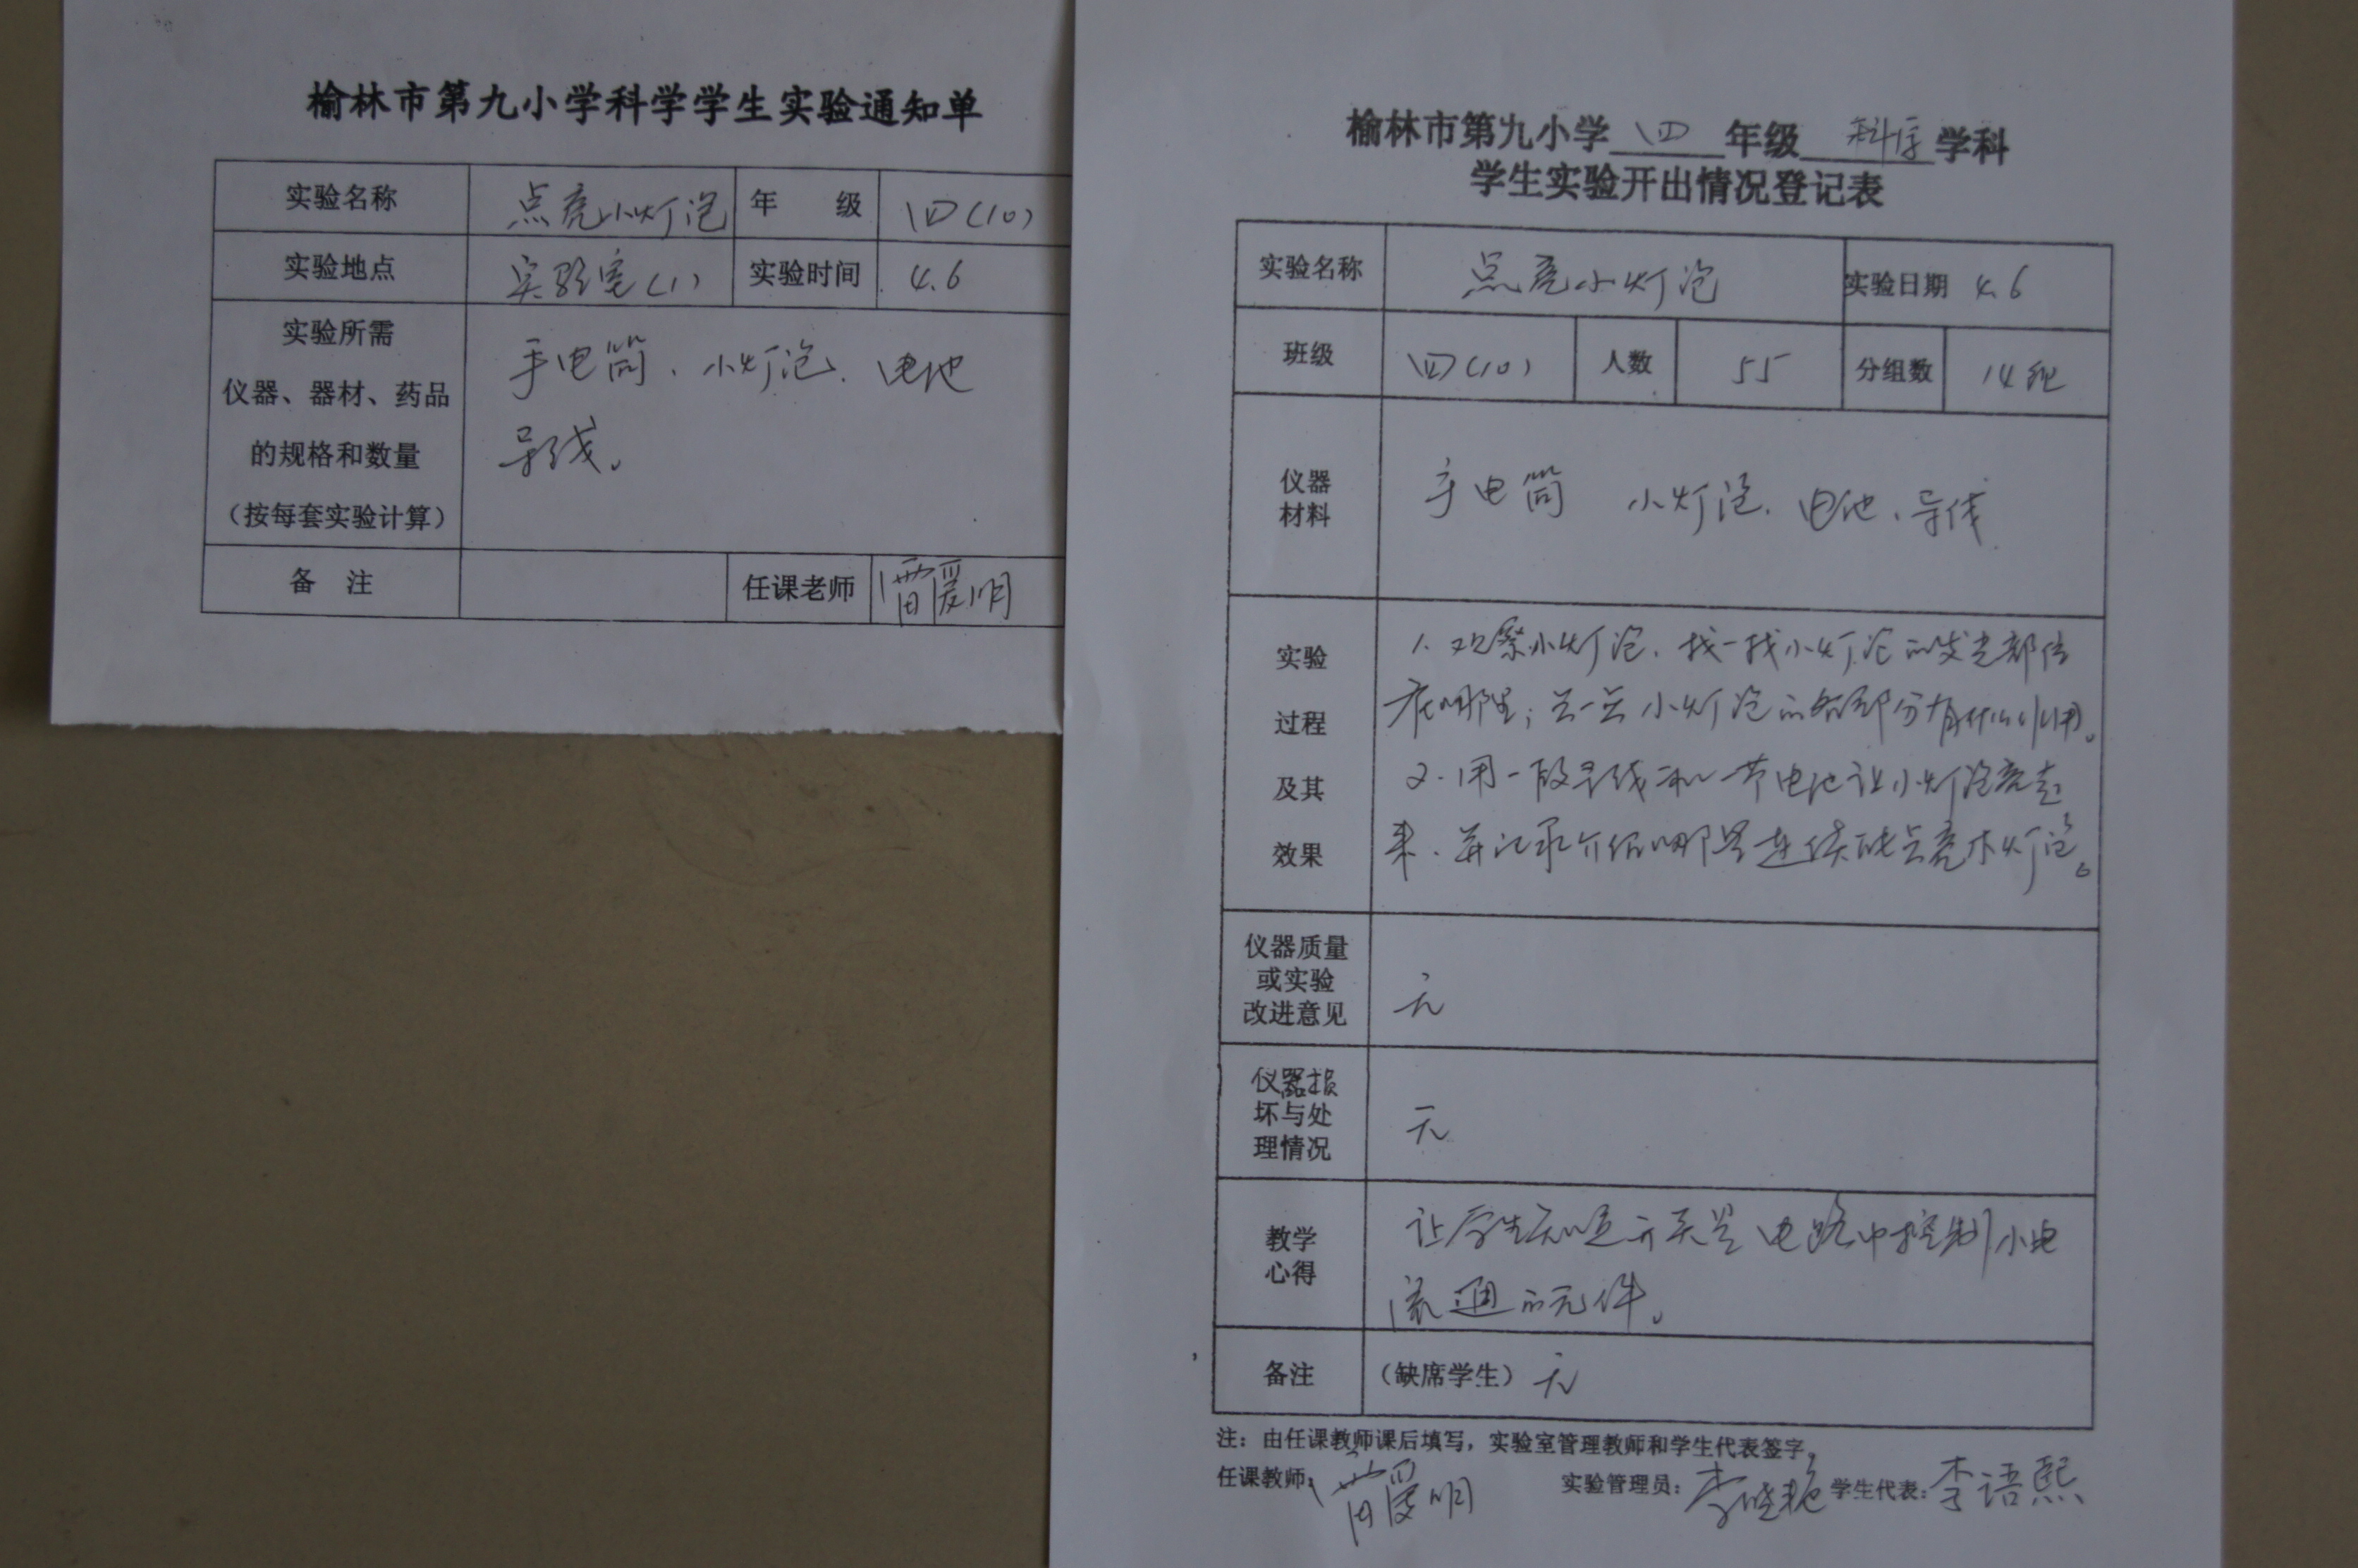 榆林市第九小学科学学生实验通知单
实验名称 点亮小灯泡 年 级 四(10)
实验地点 实验室(1) 实验时间 4.6
实验所需
仪器、器材、药品
的规格和数量
(按每套实验计算)
手电筒、小灯泡、电池
导线。
备 注 任课老师 爱明
榆林市第九小学 四 年级 科学 学科
学生实验开出情况登记表
实验名称 点亮小灯泡 实验日期 4.6
班级 四(10) 人数 55 分组数 14组
仪器
材料
手电筒 小灯泡、电池、导线
实验
过程
及其
效果
1、观察小灯泡、找一找小灯泡的发光部位
在哪里;说一说小灯泡的各部分有什么作用。
2.用一段导线和一节电池让小灯泡亮起
来、并记录介绍哪里连续能点亮小灯泡。
仪器质量
或实验
改进意见
无
仪器损
坏与处
理情况
无
教学
心得
让学生知道开关是电路中控制小电
流通的元件。
备注 (缺席学生) 无
注:由任课教师课后填写,实验室管理教师和学生代表签字。
任课教师: 爱明 实验管理员: 李 学生代表: 李语熙